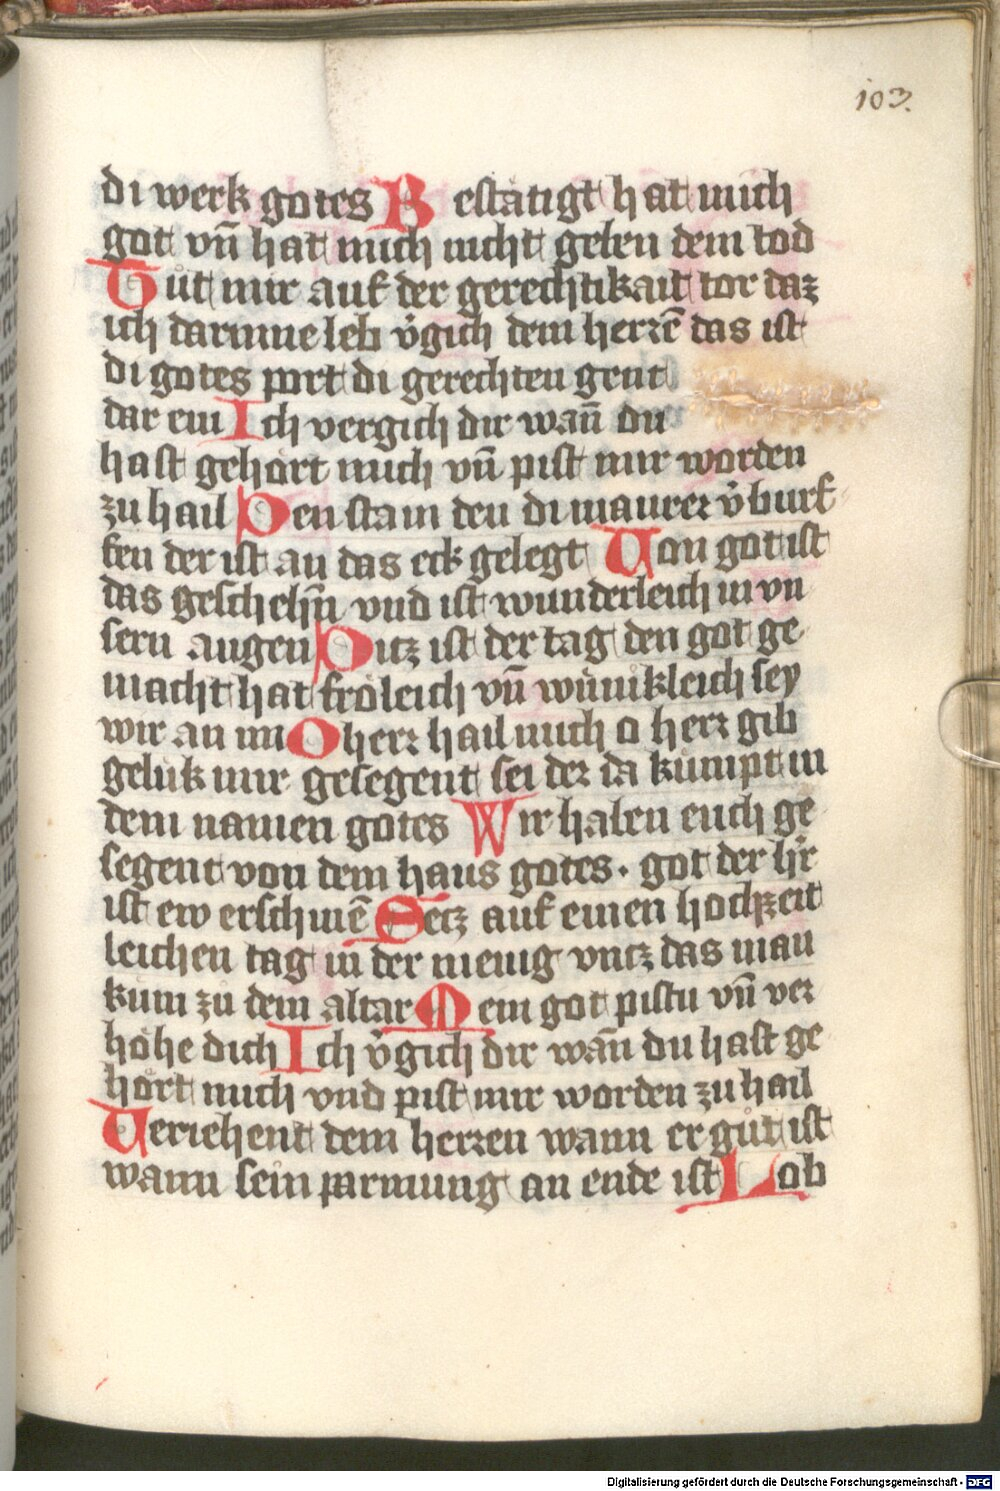 103.
di werk gotes Beståtigt hat mich
got vn̄ hat mich nicht geben dem tod
Tůt mir auf der gerechtikait tor daz
ich darinne leb v̉gich dem herrē das ist
di gotes port di gerechten gent
dar ein Ich vergich dir wan̄ du
hast gehört mich vn̄ pist mir worden
zu hail Den stain den di maurer v̉burf
fen der ist an das eck gelegt Von got ist
das geschehn̄ vnd ist wunderleich in vn
sern augen Ditz ist der tag den got ge
macht hat fröleich vn̄ wünikleich sey
wir an im O herr hail mich o herr gib
gelük mir gesegent sei der da kümpt in
dem namen gotes Wir haben euch ge
segent von dem haus gotes · got der hr̄
ist ew erschinē Setz auf einen hochzeit
leichen tag in der menig vntz das man
kum zů dem altar Mein got pistu vn̄ ver
höhe dich Ich v̉gich dir wan̄ du hast ge
hört mich vnd pist mir worden zu hail
Veriehent dem herren wann er gůt ist
wann sein parmung an ende ist Lob
Digitalisierung gefördert durch die Deutsche Forschungsgemeinschaft - DFG